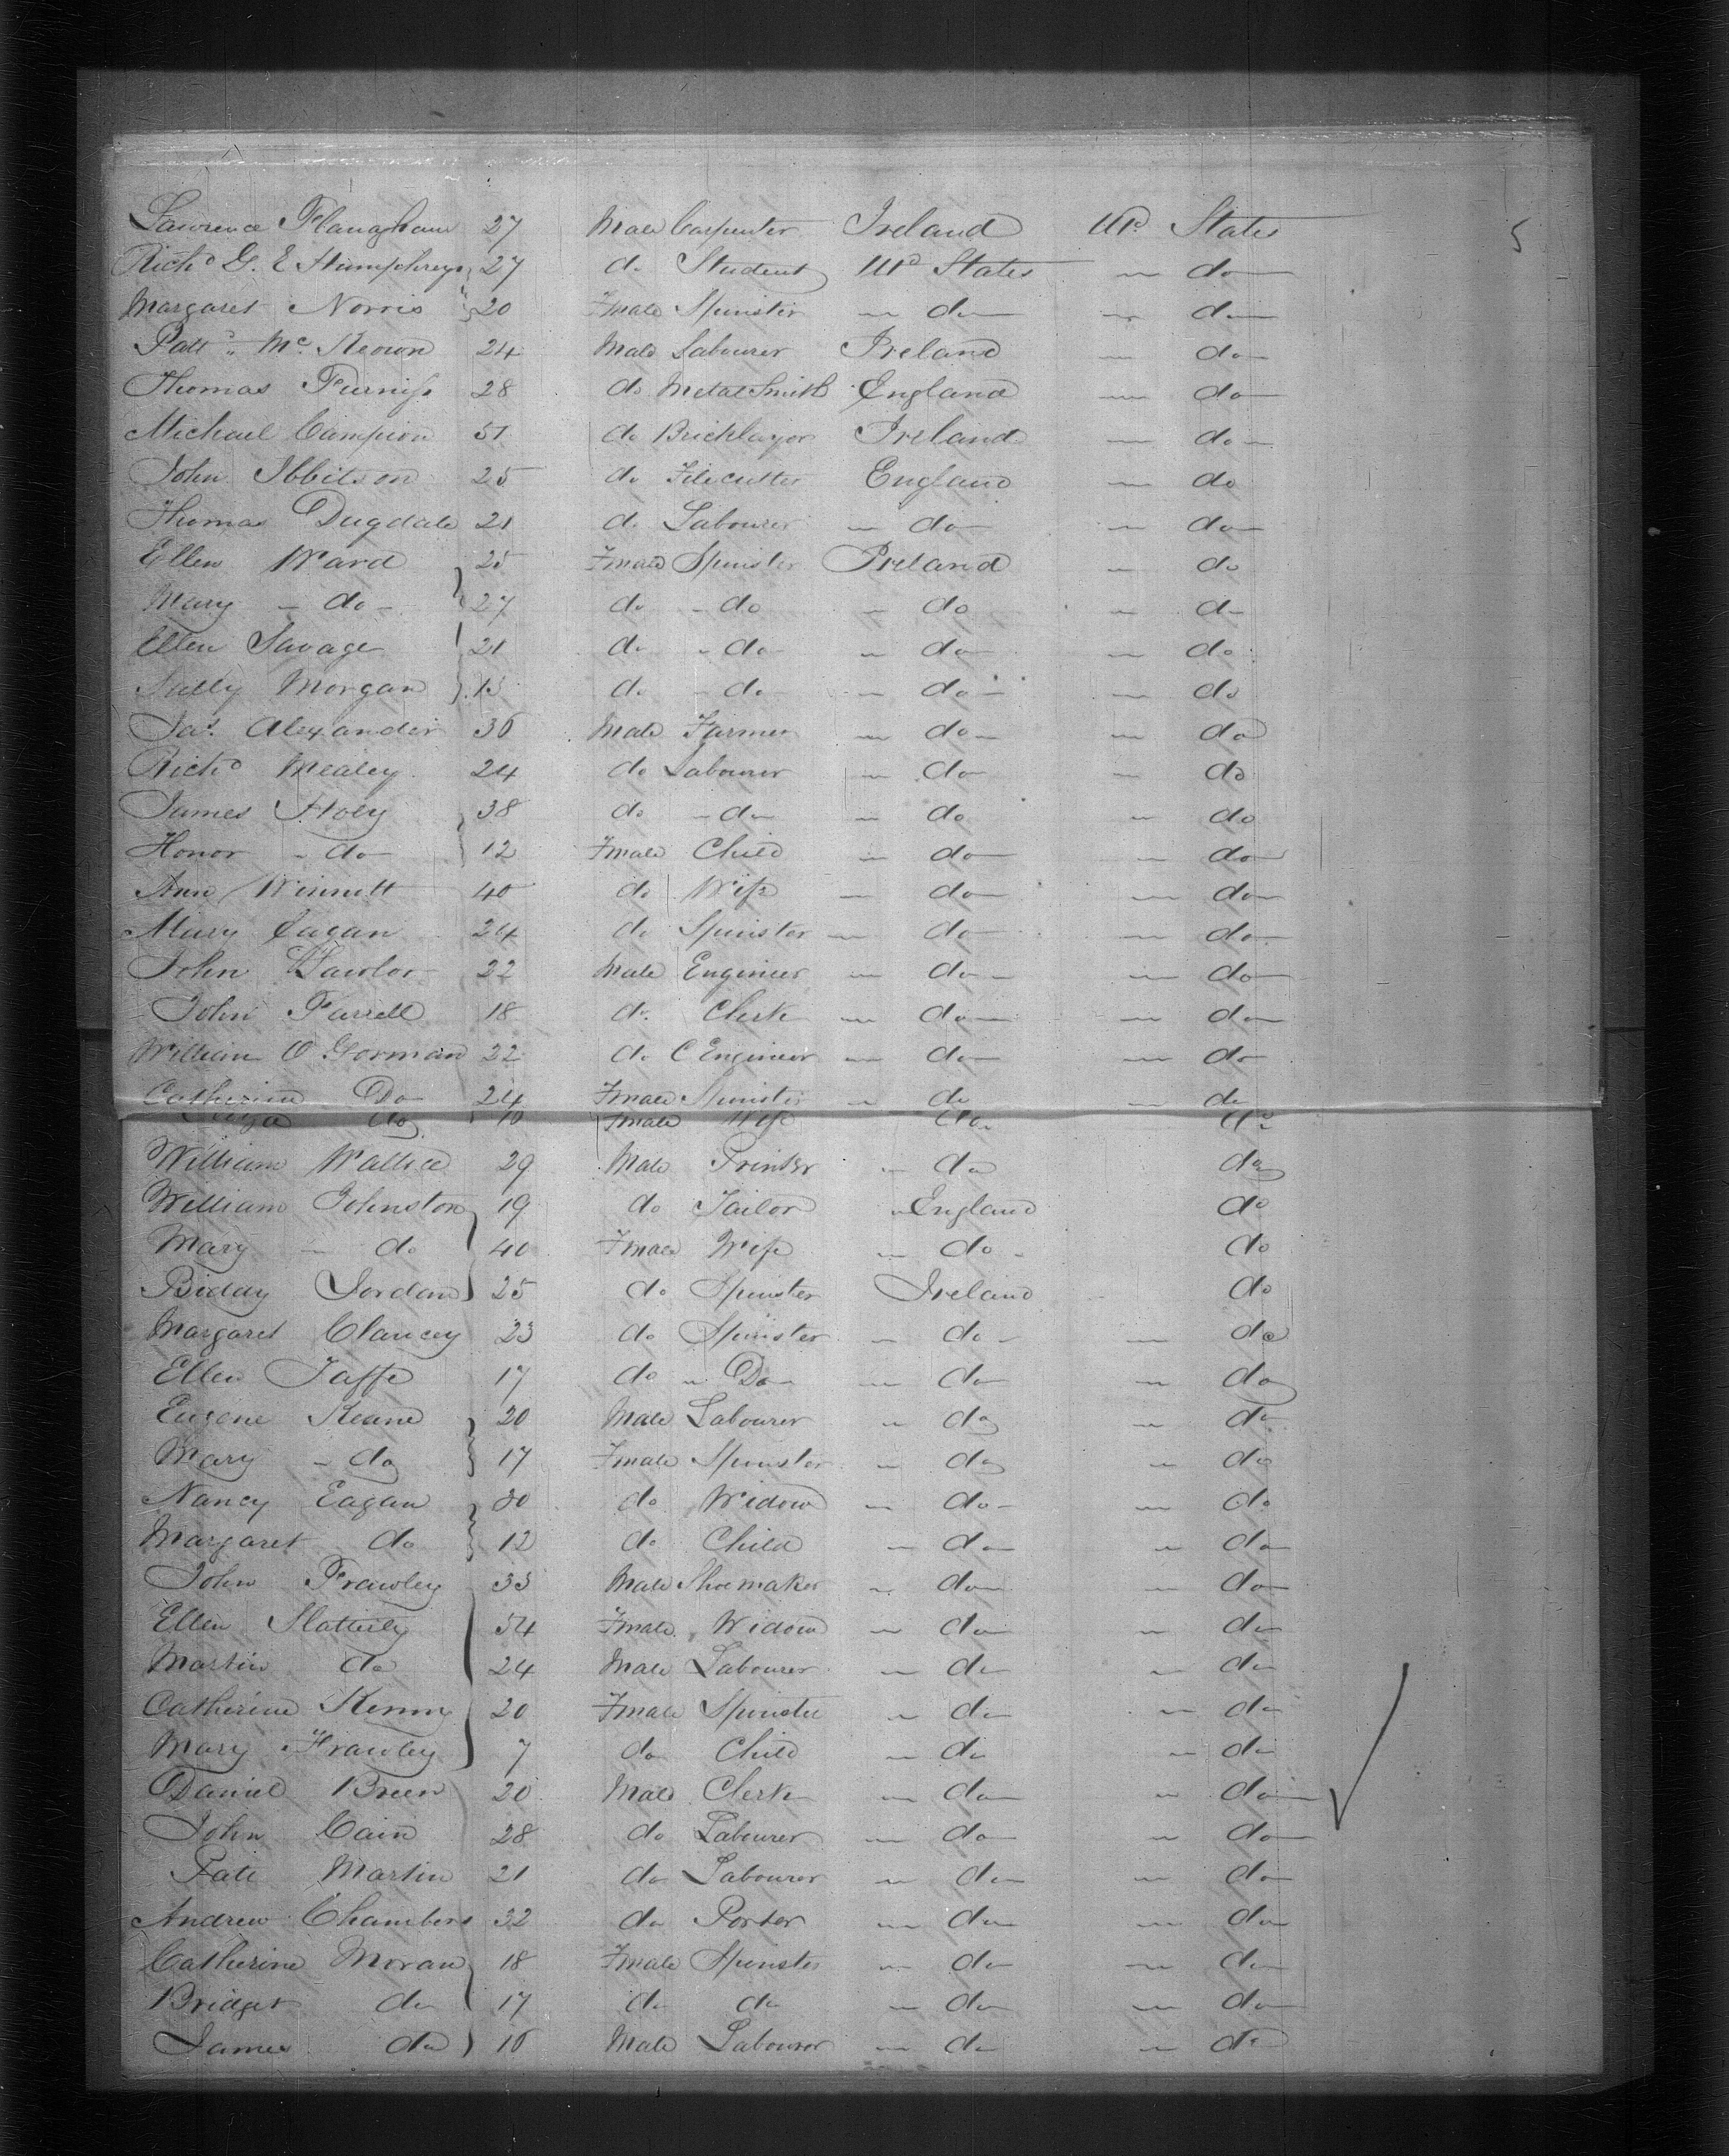 Lawrence Flanagham 27 Male Carpenter Ireland Ud. States 5
Richd G. E Humphreys 27 do Student Ud States do
Margaret Norris 20 Fmale Spinster do do
Patt Mc Keown 24 Male Labourer Ireland do
Thomas Furniss 28 do Metal Smith England do
Michael Campion 51 do Bricklayor Ireland do
John Ibbitson 25 do Filecutter England do
Thomas Dugdale 21 do Labourer do do
Ellen Ward 25 Fmale Spinster Ireland do
Mary do 27 do do do do
Ellen Savage 21 do do do do
Sally Morgan 13 do do do do
Jas. Alexander 36 Male Farmer do do
Richd Mealey 24 do Labourer do do
James Hoey 38 do do do do
Honor do 12 Fmale Child do do
Ann Winnett 40 do Wife do do
Mary Eagan 24 do Spinster do do
John Lawlor 22 Male Engineer do do
John Farrell 18 do Clerk do do
William O Gorman 22 do C Engineer do do
Catherine Do 24 Fmale Spinster do do
do 40 Fmale Wife do do
William Wallice 29 Male Printer do do
William Johnston 19 do Tailor England do
Mary do 40 Fmale Wife do do
Bidday Jordan 25 do Spinster Ireland do
Margaret Clancey 23 do Spinster do do
Ellen Taffe 17 do Do do do
Eugene Keane 20 Male Labourer do do
Mary do 17 Fmale Spinster do do
Nancy Eagan 30 do Widow do do
Margaret do 12 do Child do do
John Frawley 33 Male Shoemaker do do
Ellen Slattery 54 Fmale Widow do do
Martin do 24 Male Labourer do do
Catherine Kenny 20 Fmale Spinster do do
Mary Frawley 7 do Child do do
Daniel Breen 20 Male Clerk do do
John Cain 28 do Labourer do do
Patt Martin 21 do Labourer do do
Andrew Chambers 32 do Porter do do
Catherine Moran 18 Fmale Spinster do do
Bridget do 17 do do do do
James do 16 Male Labouror do do